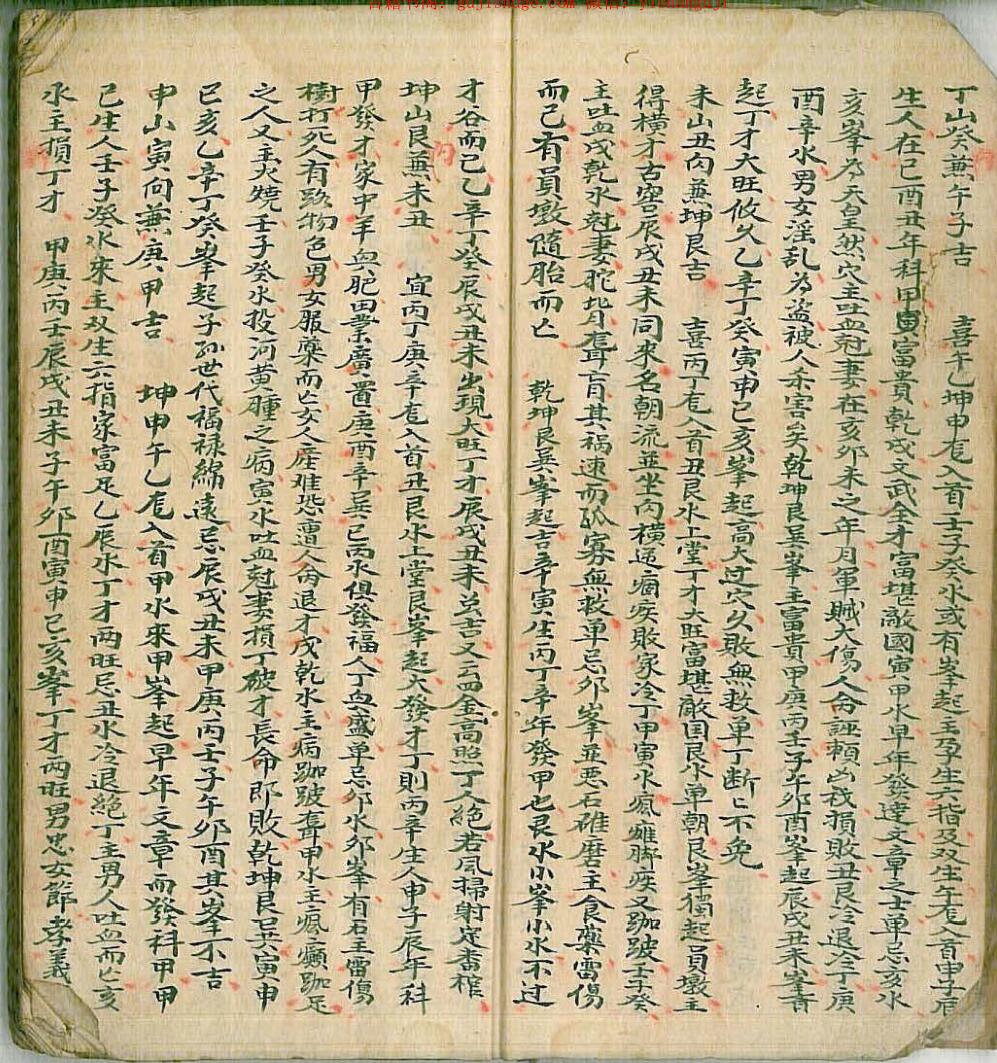 古籍书阁: gujishuge.com 微信: yishanguji
丁山癸兼午子吉　喜午乙坤申庭入首壬子癸水或有峯起主孕生六指及双生午庭入首申子辰
生人在巳酉丑年科甲寅富貴乾戌文武全才富堪敵國寅甲水早年發達文章之士单忌亥水
亥峯為天皇然穴主吐血尅妻在亥卯未之年月軍賊大傷人命誣頼凶我損敗丑艮冷退冷丁庚
酉辛水男女淫乱為盗被人杀害矣乾坤艮巽峯主富貴甲庚丙壬子午卯酉峯起辰戌丑未峯音
起丁才大旺攸久乙辛丁癸寅申巳亥峯起高大过穴久敗無救单丁断亡不免
未山丑向兼坤艮吉　喜丙丁庭入首丑艮水上堂丁才大旺富堪敵国艮水单朝艮峯獨起員墩主
得横才古窑辰戌丑未同來名朝流並坐向横逼痼疾敗家冷丁甲寅水瘋癱脚疾又跏跛壬子癸
主吐血戌乾水尅妻駝背聾盲其禍速而孤寡無救单忌卯峯並惡石碓磨主食藥雷傷
而已有員墩隨胎而亡　乾坤艮巽峯起吉辛寅生丙丁辛年發甲也艮水小峯小水不过
才谷而已乙辛丁癸辰戌丑未出現大旺丁才辰戌丑未总吉又云四金高照丁人絶若風掃射定番棺
坤山艮兼未丑　宜丙丁庚辛庭入首丑艮水上堂艮峯起大發才丁則丙辛生人申子辰年科
甲發才家中羊血肥田業廣置庚酉辛巽巳丙水俱發福人丁血盛单忌卯水卯峯有石主雷傷
樹打死人有路物色男女服藥而亡女人産难恐遭人命退才戌乾水主病跏跛聾甲水主瘋癲跏足
之人又主火燒壬子癸水投河黄腫之病寅水吐血尅妻損丁破才長命即敗乾坤艮巽寅申
巳亥乙辛丁癸峯起子孙世代福禄綿遠忌辰戌丑未甲庚丙壬子午卯酉其峯不吉
申山寅向兼庚甲吉　坤申午乙庭入首甲水來甲峯起早年文章而發科甲甲
巳生人壬子癸水來主双生六指家富足乙辰水丁才两旺忌丑水冷退絶丁主男人吐血而亡亥
水主損丁才　甲庚丙壬辰戌丑未子午卯酉寅申巳亥峯丁才两旺男忠女節孝義